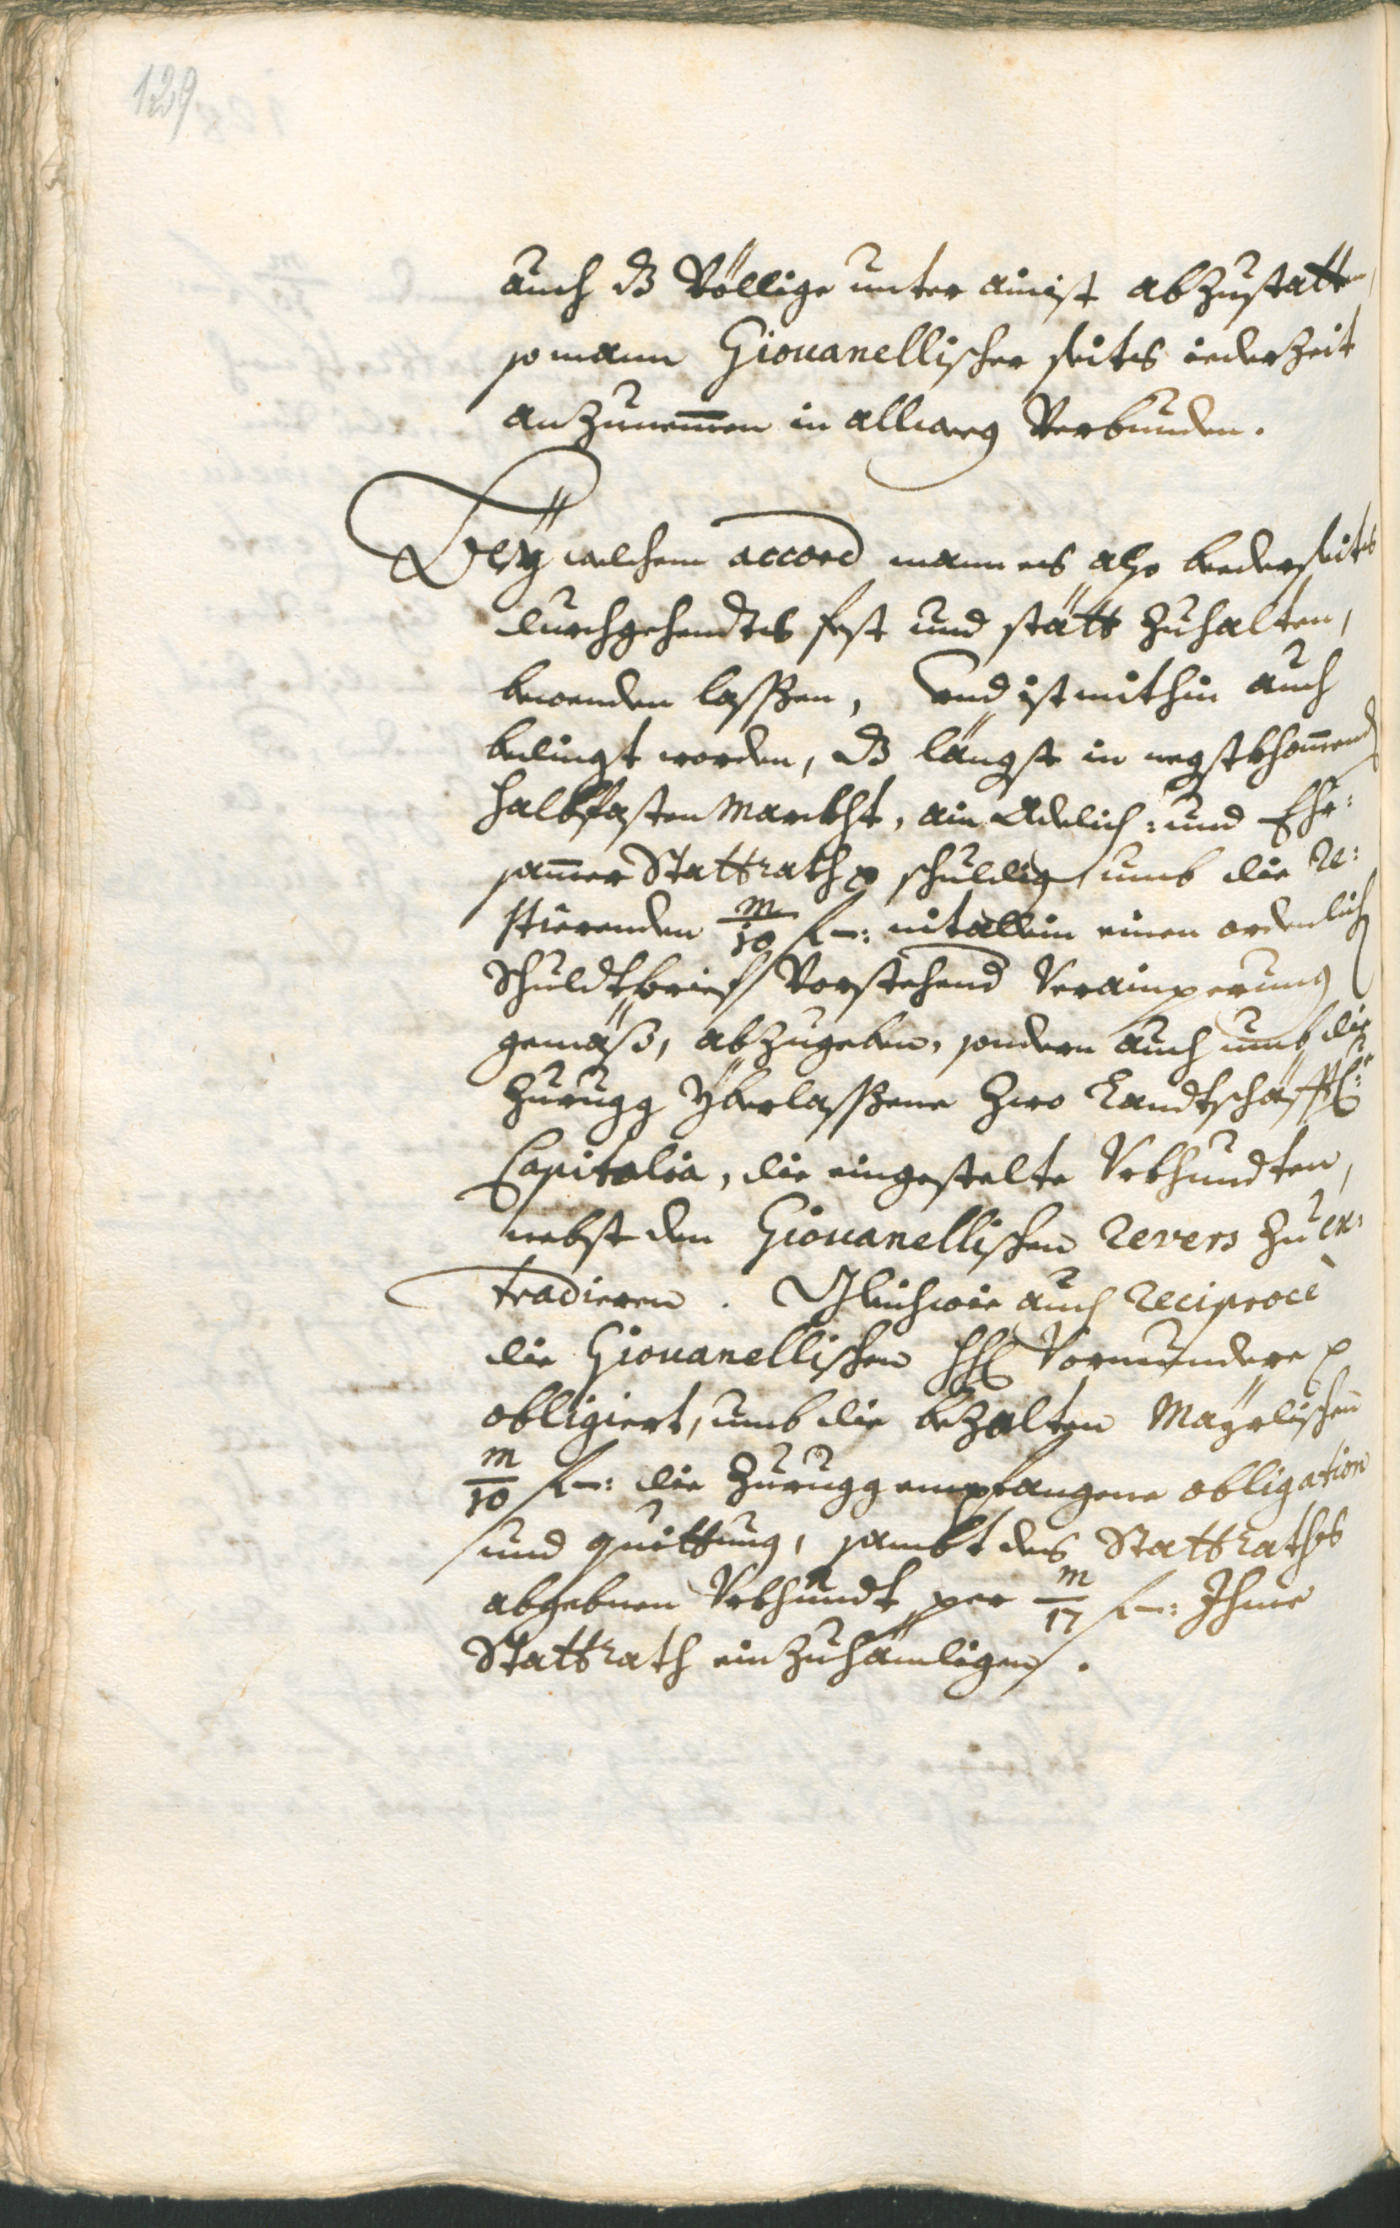 129
auch dz völlige unter ainist abzustatten,
so mann Giouanellischer seites iederzeit
anzunemmen in allweeg verbunden.
Bey welchem accord mann es also beederseites
durchgehendtes fest und stätt zuhalten,
bewenden lassen, und ist mithin auch
bedingt worden, dz längst in negstkhommend
Halbfasten Marckht, ain Adelich: und Ehr:
sammer Stattrath p schuldig umb die re:
stierenden m/10 f –: nit allein einen ordenlich
Schuldtbrief vorstehend verainperung
gemäß, abzugeben, sondern auch umb die
zurugg yberlassene zwo Landtschäfftl:
Capitalia, die eingestelte Vrkhundten,
nebst den Giouanellischen revers zu ex:
tradieren. Gleichwie auch reciprocè
die Giouanellischen HH Vormundere p
obligiert, umb die bezalten Mayrlischen
m/10 f –: die zurugg empfangene obligation
und quittung, sambt des Stattrathes
abgebnen Vrkhundt per m/17 f –: Ihme
Stattrath einzuhändigen.